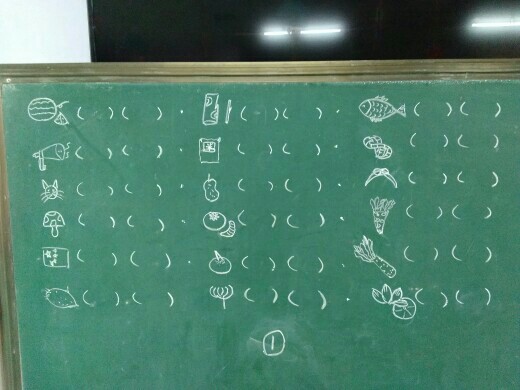 ( ) ( ) ( ) ( ) . ( ) ( )
( ) ( ) . ( ) ( ) . ( ) ( )
( ) ( ) . ( ) ( ) . ( ) ( )
( ) ( ) . ( ) ( ) . ( ) ( )
( ) ( ) . ( ) ( ) ( ) ( )
( ) . ( ) ( ) ( ) . ( ) ( )
①